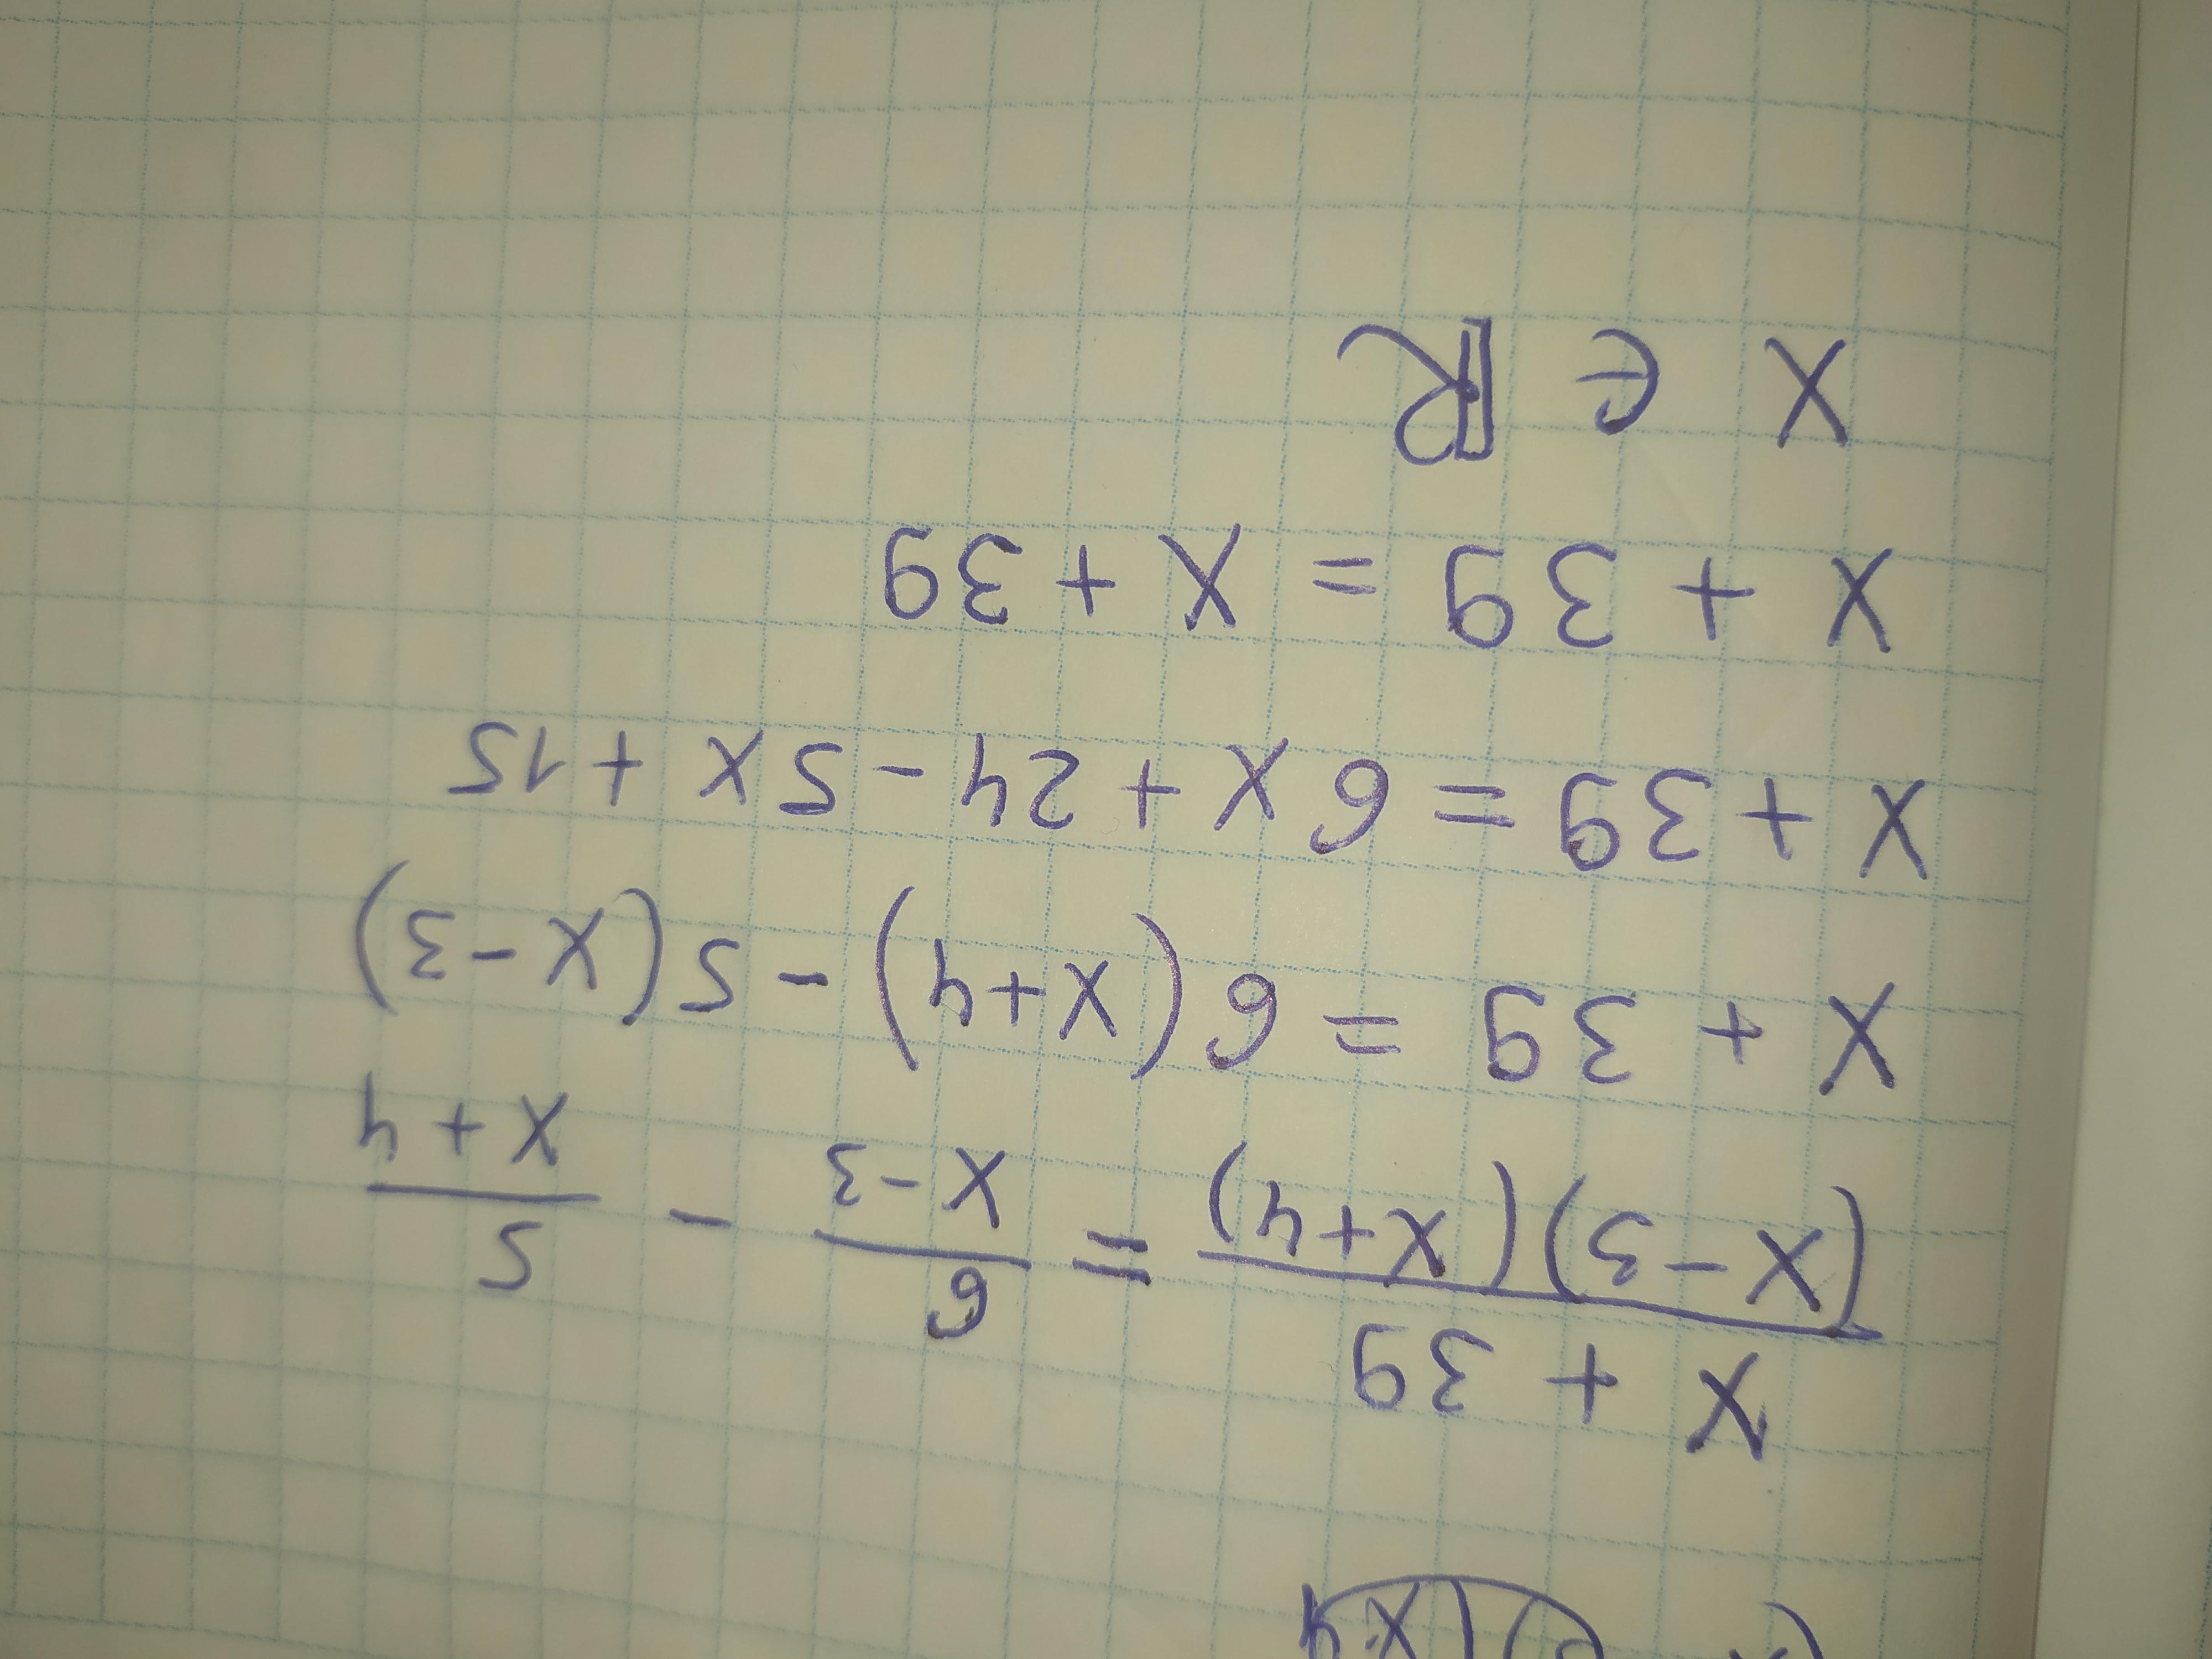 (x-3)(x+4)
x + 39 / (x-3)(x+4) = 6 / x-3 - 5 / x+4
x + 39 = 6(x+4) - 5(x-3)
x + 39 = 6x + 24 - 5x + 15
x + 39 = x + 39
x ∈ ℝ